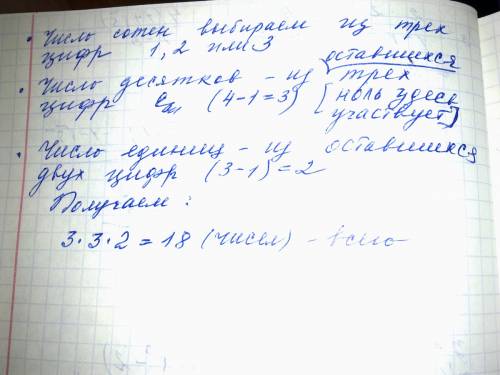 • Число сотен выбираем из трех
цифр 1, 2 или 3
оставшихся
• Число десятков – из трех
цифр (4-1=3) [ноль здесь
участвует]
• Число единиц – из оставшихся
двух цифр (3-1)=2
Получаем:
3·3·2 = 18 (чисел) – всего